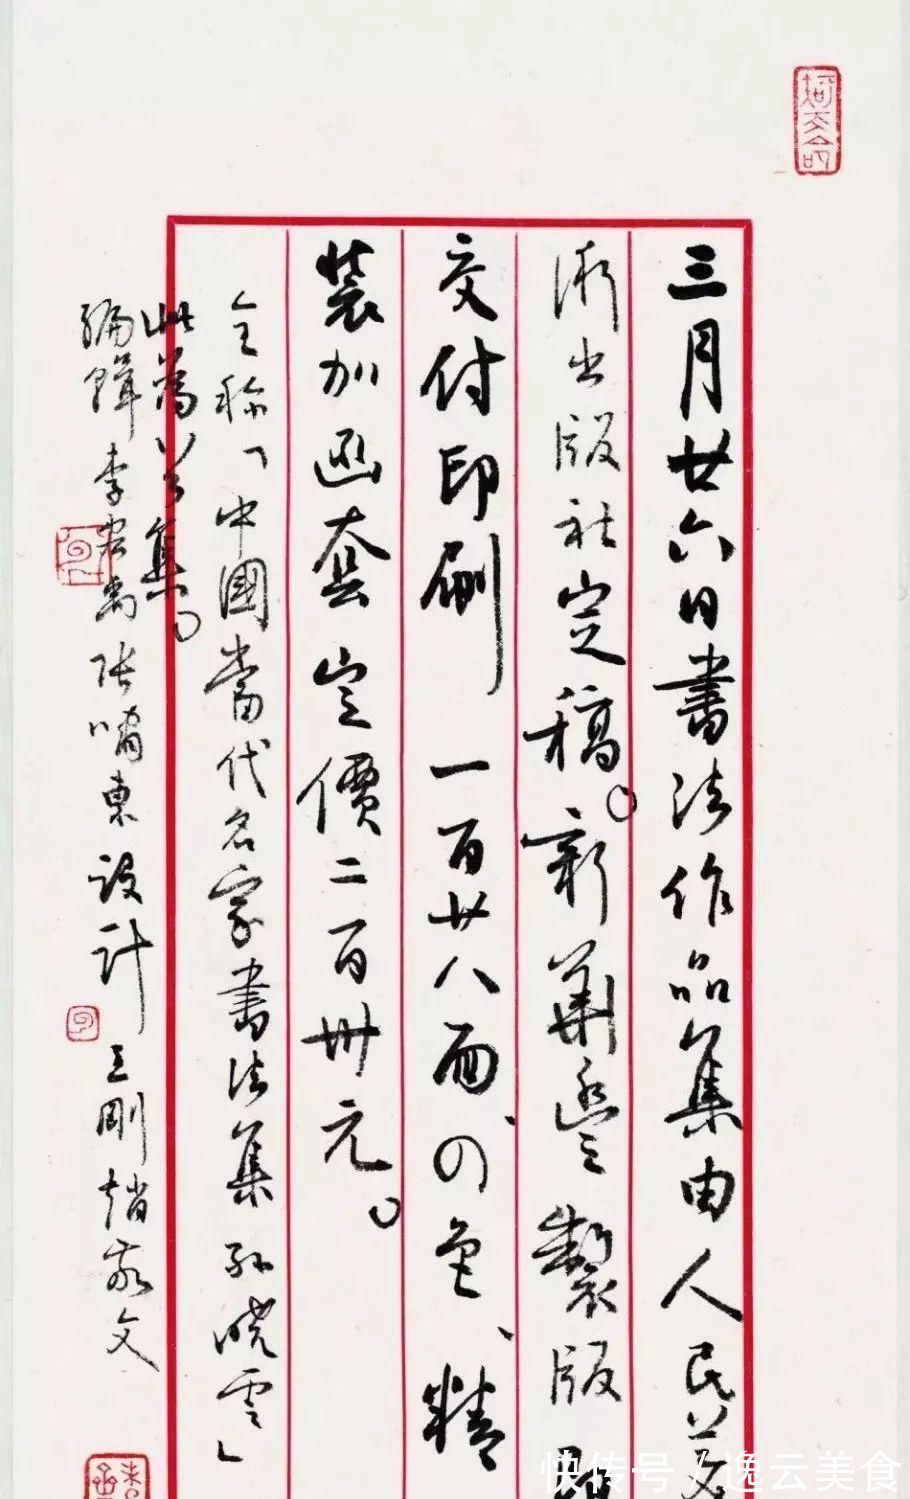 三月廿六日書法作品集由人民美
術出版社定稿。新華
製版
交付印刷一百廿八面、四色、精
裝加函套定價二百卅元。
全称「中國當代名家書法集孫曉雲」
此為首集。
編輯李宏禹張嘯東設計王剛趙
文
快传号/逸云美食